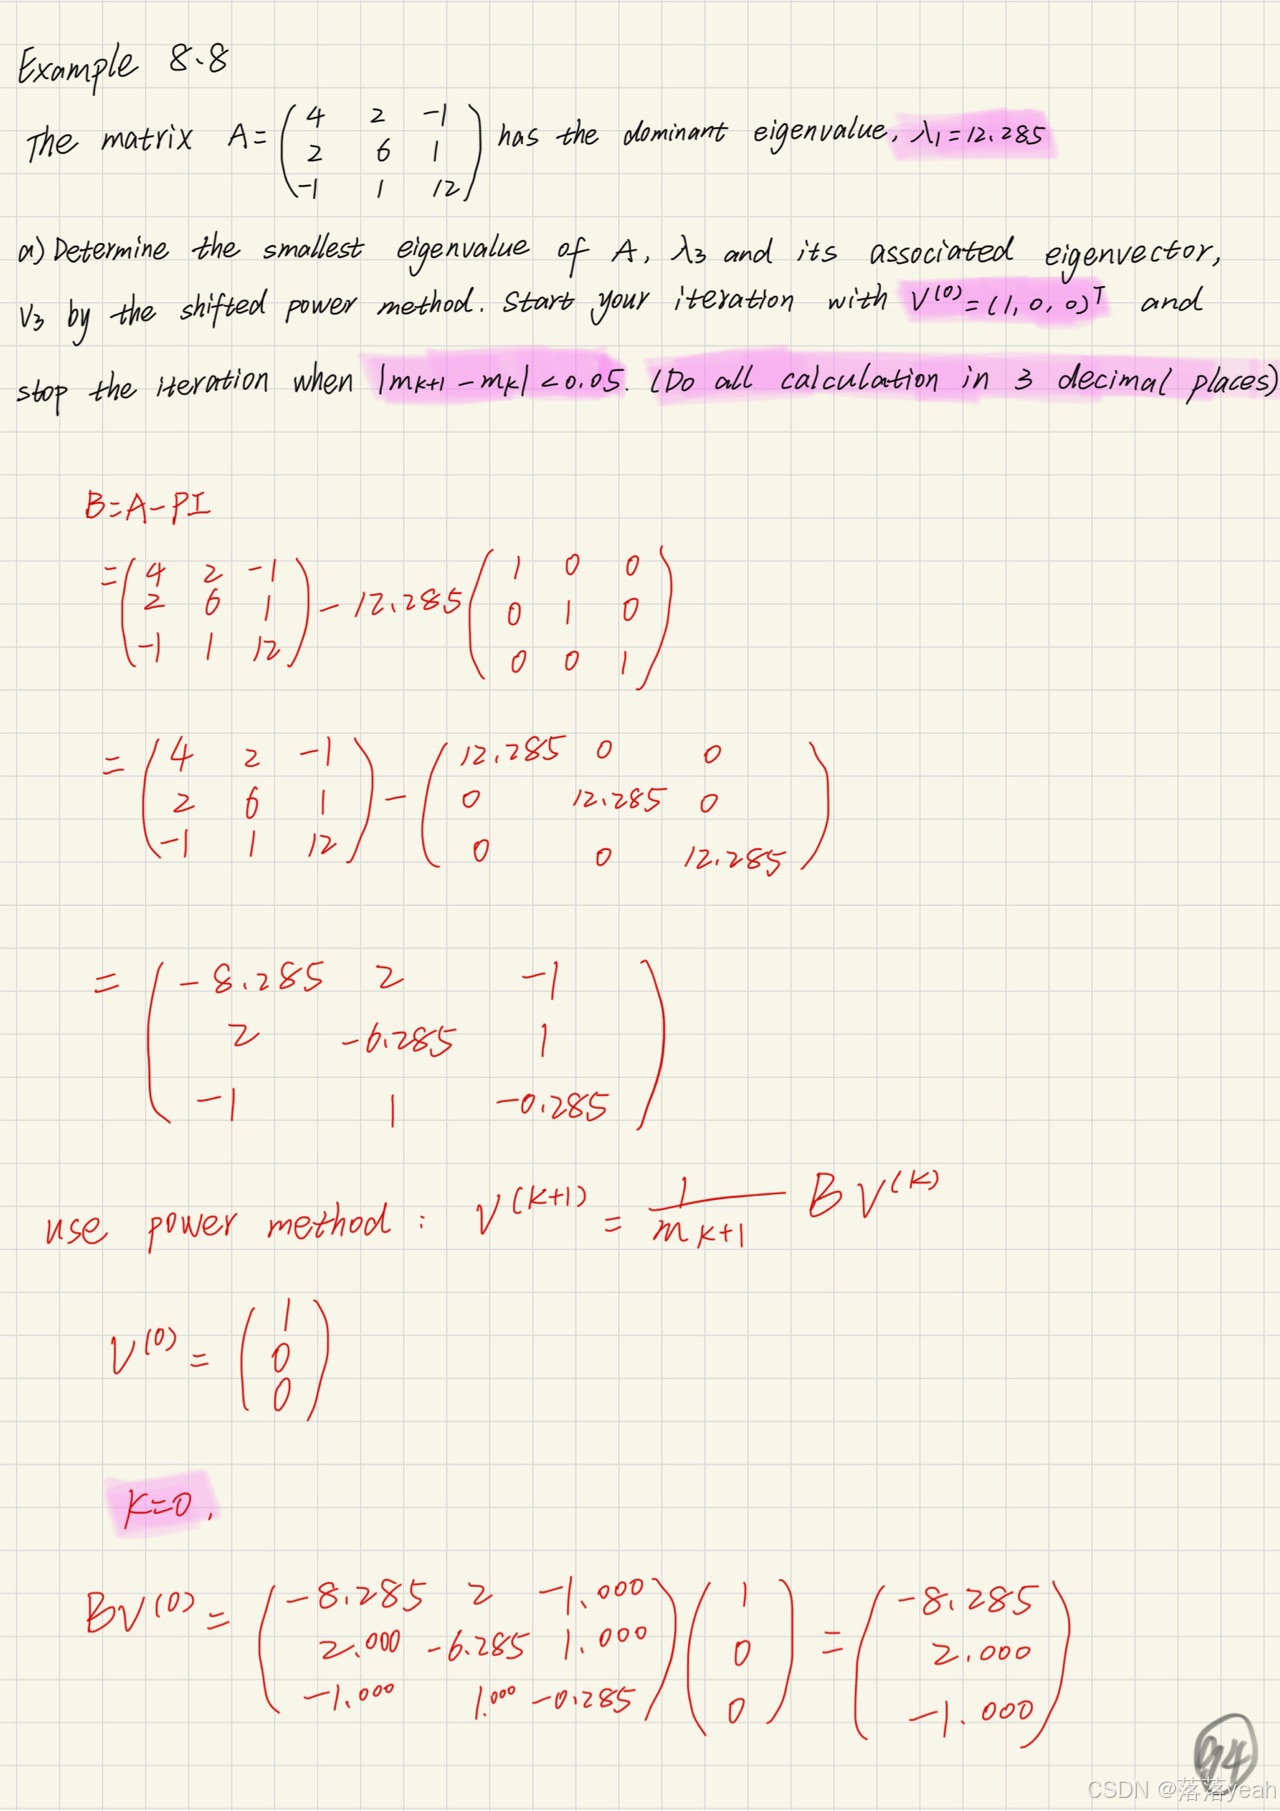 Example 8.8
The matrix A= ( 4 2 -1 ) has the dominant eigenvalue, λ1=12.285
2 6 1
-1 1 12
a) Determine the smallest eigenvalue of A, λ3 and its associated eigenvector,
V3 by the shifted power method. Start your iteration with V^(0)=(1, 0, 0)^T and
stop the iteration when |mk+1 - mk| <0.05. (Do all calculation in 3 decimal places)
B=A-PI
= ( 4 2 -1 ) - 12.285 ( 1 0 0 )
2 6 1 0 1 0
-1 1 12 0 0 1
= ( 4 2 -1 ) - ( 12.285 0 0 )
2 6 1 0 12.285 0
-1 1 12 0 0 12.285
= ( -8.285 2 -1 )
2 -6.285 1
-1 1 -0.285
use power method: V^(k+1) = 1/mk+1 B V^(k)
V^(0) = ( 1 )
0
0
K=0,
BV^(0) = ( -8.285 2 -1.000 ) ( 1 ) = ( -8.285 )
2.000 -6.285 1.000 0 2.000
-1.000 1.000 -0.285 0 -1.000
94
CSDN @落落yeah